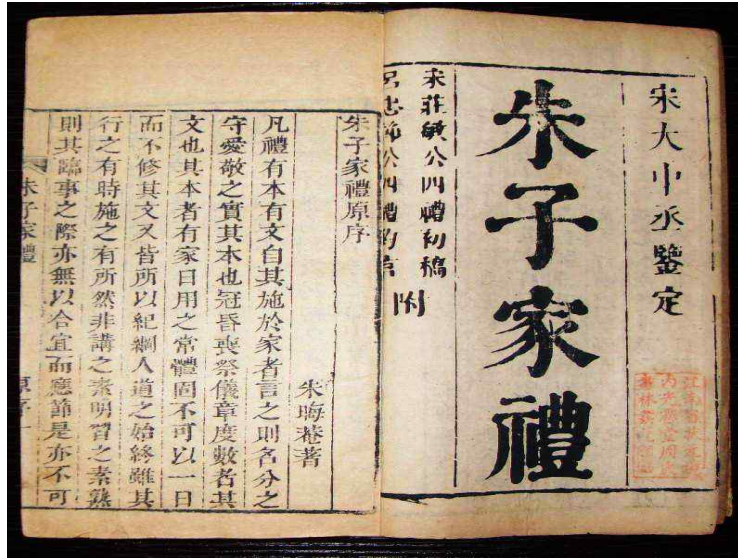 宋大中丞鑒定
朱子家禮
宋莊敏公四禮初稿
呂忠節公四禮約言
附
朱子家禮原序
朱晦菴著
凡禮有本有文自其施於家者言之則名分之
守愛敬之實其本也冠昏喪祭儀章度數者其
文也其本者有家日用之常體固不可以一日
而不修其文又皆所以紀綱人道之始終雖其
行之有時施之有所然非講之素明習之素熟
則其臨事之際亦無以合宜而應節是亦不可
朱子家禮
原序